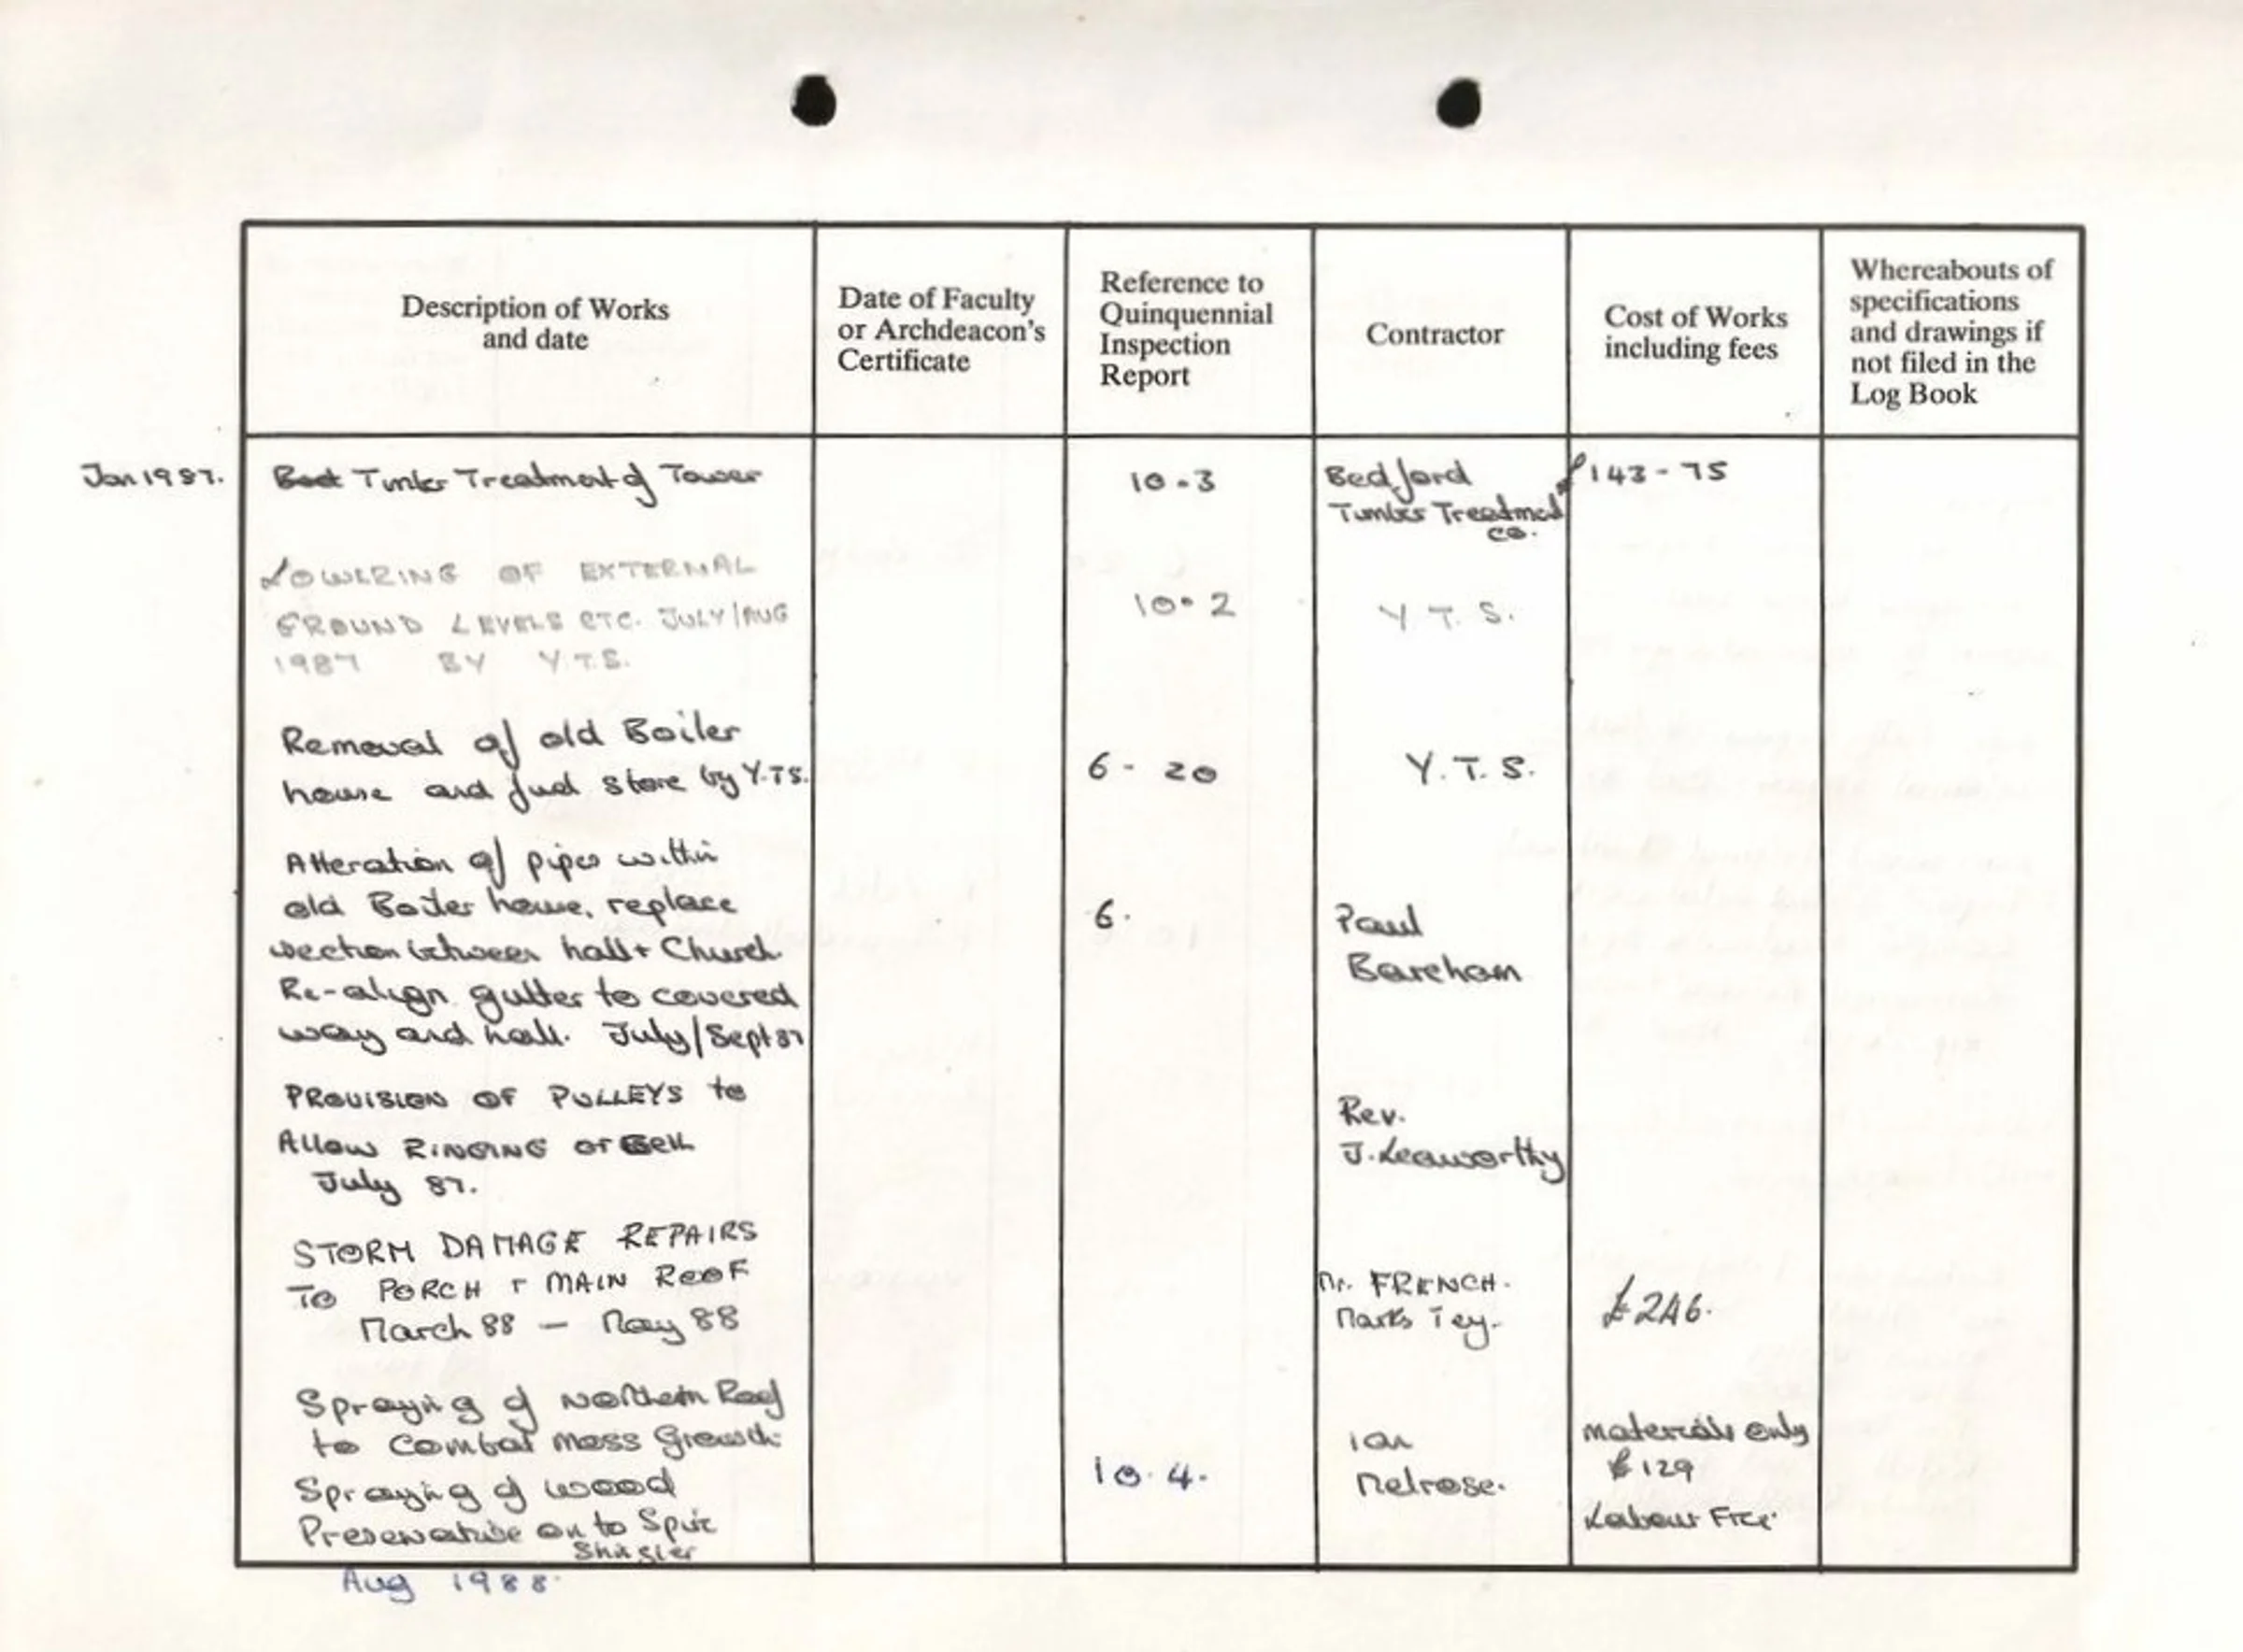 Description of Works
and date
Date of Faculty
or Archdeacon's
Certificate
Reference to
Quinquennial
Inspection
Report
Contractor
Cost of Works
including fees
Whereabouts of
specifications
and drawings if
not filed in the
Log Book
Jan 1987.
Timber Treatment of Tower
10.3
Bedford
Timber Treatment
co.
£143-75
LOWERING OF EXTERNAL
GROUND LEVELS ETC. JULY/AUG
1987 BY Y.T.S.
10.2
Y.T.S.
Removal of old Boiler
house and fuel store by Y.T.S.
6-20
Y.T.S.
Alteration of pipes within
old Boiler house, replace
section between hall + Church.
Re-align gutter to covered
way and hall. July/Sept 87
6.
Paul
Bareham
PROVISION OF PULLEYS to
Allow RINGING OF Bell
July 87.
Rev.
J. Leaworthy
STORM DAMAGE REPAIRS
TO PORCH + MAIN ROOF
March 88 — May 88
Mr. FRENCH.
Marks Tey.
£246.
Spraying of Northern Roof
to Combat moss Growth.
Spraying of wood
Preservative on to Spire
Aug 1988.
10.4.
Ian
Melrose.
materials only
£129
Labour Free.